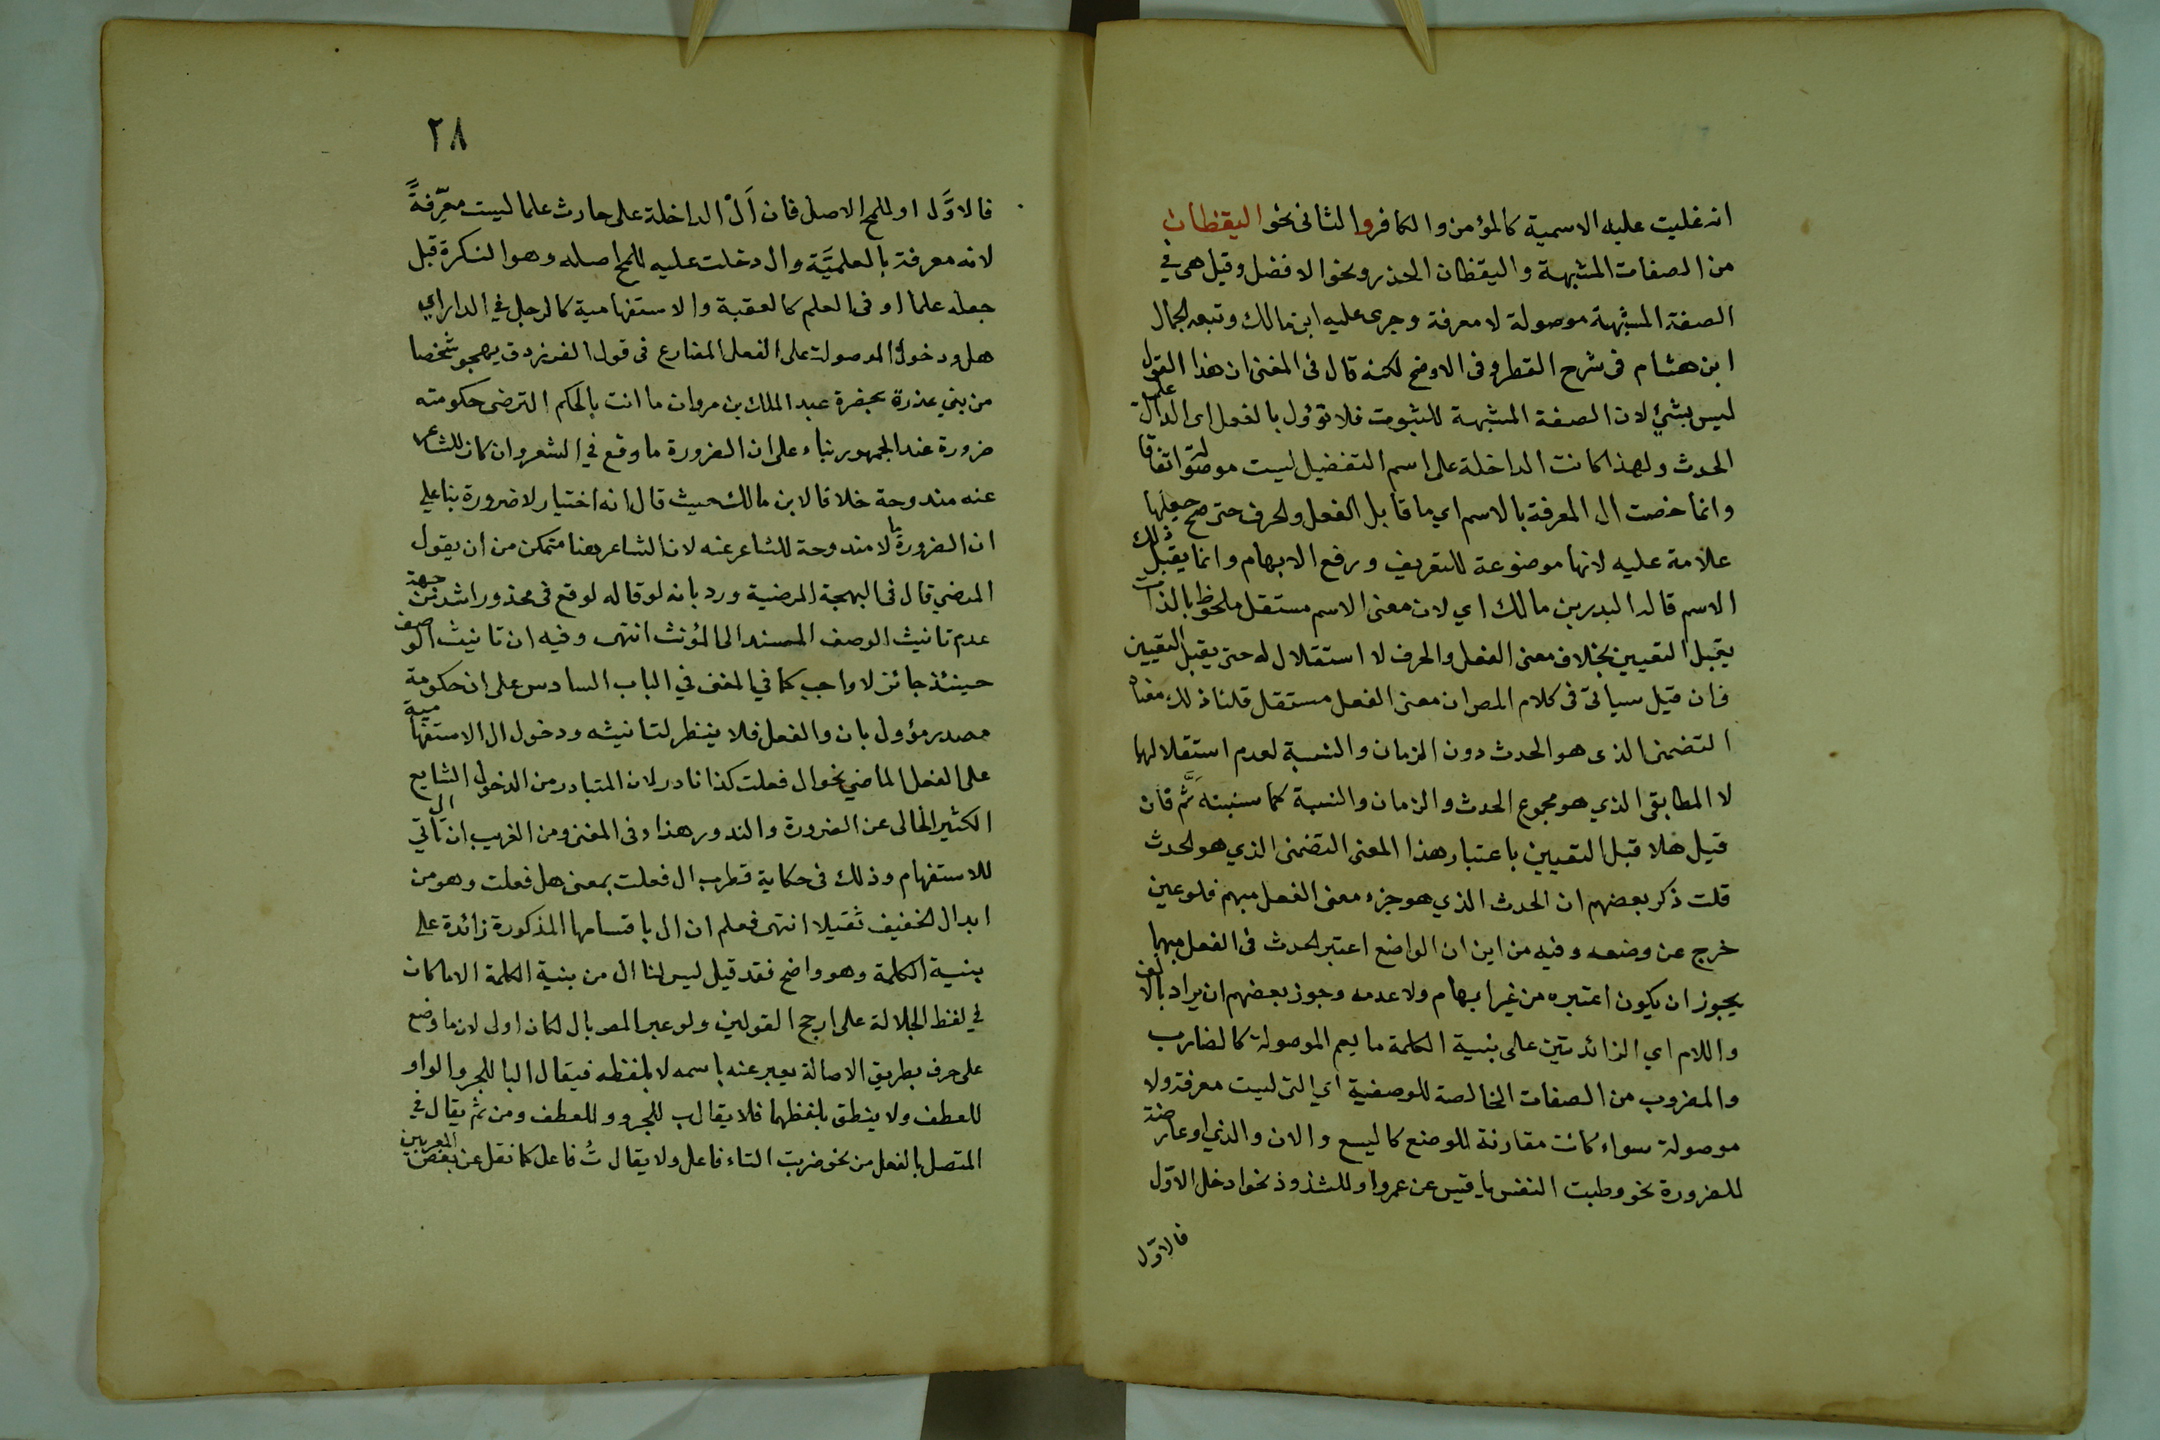 انه غلبت عليه الاسمية كالمؤمن والكافر والثانى نحو اليقظان
من الصفات المشبهة واليقظان الحذر ونحو الافضل وقيل هى في
الصفة المشبهة موصولة لا معرفة وجرى عليه ابن مالك وتبعه الجمال
ابن هشام فى شرح القطر وفى الاوضح لكنه قال فى المغنى ان هذا القول
ليس بشئ لان الصفة المشبهة للثبوت فلا تؤول بالفعل اى الدال على
الحدث ولهذا كانت الداخلة على اسم التفضيل ليست موصولة اتفاقا
وانما خصت ال المعرفة بالاسم اي ما قابل الفعل والحرف حتى صح جعلها
علامة عليه لانها موضوعة للتعريف ورفع الابهام وانما يقبل ذلك
الاسم قاله البدر بن مالك اي لان معنى الاسم مستقل ملحوظ بالذات
يقبل التعيين بخلاف معنى الفعل والحرف لا استقلال له حتى يقبل التعيين
فان قيل سيأتى فى كلام المص ان معنى الفعل مستقل قلنا ذلك معناه
التضمنى الذى هو الحدث دون الزمان والنسبة لعدم استقلالهما
لا المطابقى الذي هو مجموع الحدث والزمان والنسبة كما سنبينه ثَمَّ فان
قيل هلا قبل التعيين باعتبار هذا المعنى التضمنى الذي هو الحدث
قلت ذكر بعضهم ان الحدث الذي هو جزء معنى الفعل مبهم فلو عين
خرج عن وضعه وفيه من اين ان الواضع اعتبر الحدث فى الفعل مبهما
يجوز ان يكون اعتبره من غير ابهام ولا عدمه وجوز بعضهم ان يراد بالالف
واللام اي الزائدتين على بنية الكلمة ما يعم الموصولة كالضارب
والمضروب من الصفات الخالصة للوصفية اي التى ليست معرفة ولا
موصولة سواء كانت مقارنة للوضع كاليسع والان والذي او عارضة
للضرورة نحو وطبت النفس يا قيس عن عمرو او للشذوذ نحو ادخل الاوّل
فالاوّل
٢٨
فالاوَّل او للمح الاصل فان اَلْ الداخلة على حارث علما ليست معرِّفةً
لانه معرفة بالعلميَّة وال دخلت عليه للمح اصله وهو النكرة قبل
جعله علما او فى العلم كالعقبة والاستفهامية كالرجل في الدار اي
هل ودخول الموصولة على الفعل المضارع فى قول الفرزدق يهجو شخصا
من بني عذرة بحضرة عبد الملك بن مروان ما انت بالحكم الترضى حكومته
ضرورة عند الجمهور بناء على ان الضرورة ما وقع في الشعر وان كان للشاعر
عنه مندوحة خلافا لابن مالك حيث قال انه اختيار لا ضرورة بنا على
ان الضرورة ما لا مندوحة للشاعر عنه لان الشاعر هنا متمكن من ان يقول
المرضي قال فى البهجة المرضية ورد بانه لو قاله لوقع فى محذور اشد من جهة
عدم تانيث الوصف المسند الى المؤنث انتهى وفيه ان تانيث الوصف
حينئذ جائز لا واجب كما في المغنى في الباب السادس على ان حكومة
مصدر مؤول بان والفعل فلا ينظر لتانيثه ودخول ال الاستفهامية
على الفعل الماضي نحو ال فعلت كذا نادر لان المتبادر من الدخول الشايع
الكثير الخالى عن الضرورة والندور هذا وفى المغنى ومن الغريب ان تأتي ال
للاستفهام وذلك فى حكاية قطرب ال فعلت بمعنى هل فعلت وهو من
ابدال الخفيف ثقيلا انتهى فعلم ان ال باقسامها المذكورة زائدة على
بنية الكلمة وهو واضح فقد قيل ليس لنا ال من بنية الكلمة الا ما كان
في لفظ الجلالة على ارجح القولين ولو عبر المص بال لكان اولى لان ما وضع
على حرف بطريق الاصالة يعبر عنه باسمه لا بلفظه فيقال البا للجر والواو
للعطف ولا ينطق بلفظهما فلا يقال ب للجر وو للعطف ومن ثم يقال في
المتصل بالفعل من نحو ضربت التاء فاعل ولا يقال تُ فاعل كما نقل عن بعض المعربين